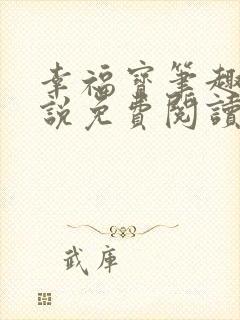 幸福寶筆趣
說免費閱讀
武庫